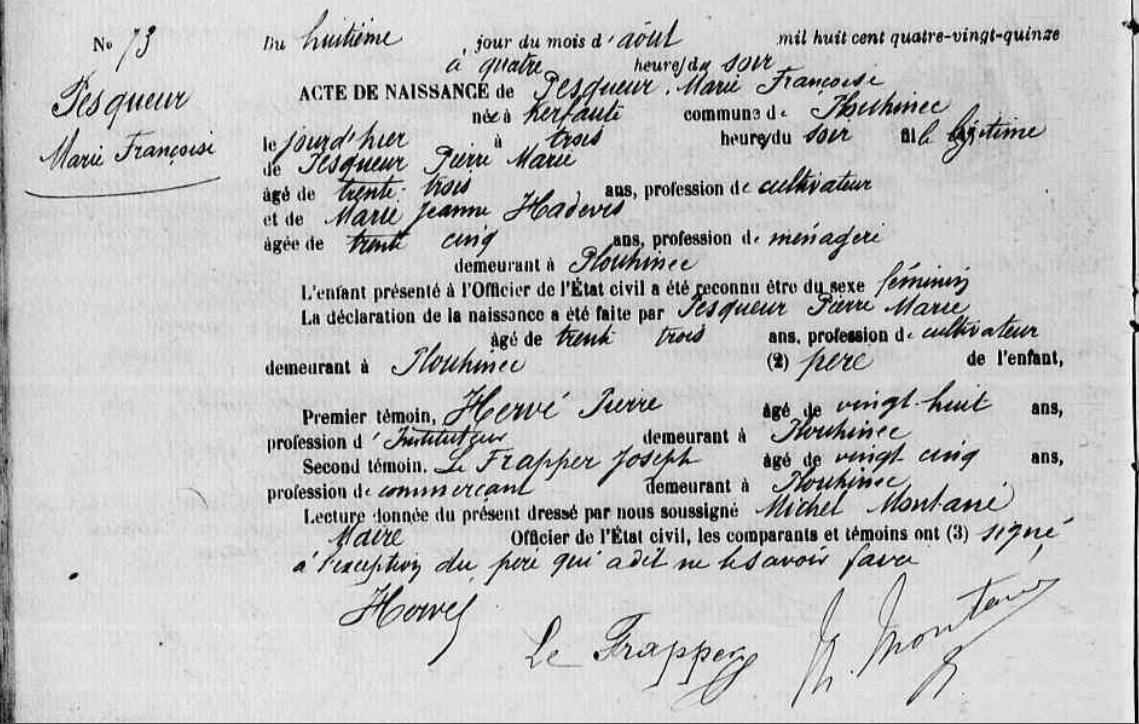 No 73
Pesqueur
Marie Françoise
Du huitième jour du mois d'août mil huit cent quatre-vingt-quinze
à quatre heures du soir
ACTE DE NAISSANCE de Pesqueur Marie Françoise
née à commune de Plouhinec
le jour d'hier à trois heures du soir légitime
de Pesqueur Pierre Marie
âgé de trente trois ans, profession de cultivateur
et de Marie Jeanne
âgée de trente cinq ans, profession de ménagère
demeurant à Plouhinec
L'enfant présenté à l'Officier de l'État civil a été reconnu être du sexe féminin
La déclaration de la naissance a été faite par Pesqueur Pierre Marie
âgé de trente trois ans, profession de cultivateur
demeurant à Plouhinec (2) père de l'enfant,
Premier témoin, Hervé Pierre âgé de vingt-huit ans,
profession d'Instituteur demeurant à Plouhinec
Second témoin, Le Frapper Joseph âgé de vingt cinq ans,
profession de commerçant demeurant à Plouhinec
Lecture donnée du présent dressé par nous soussigné Michel
Maire Officier de l'État civil, les comparants et témoins ont (3) signé
à l'exception du père qui a dit ne le savoir faire
Le Frapper